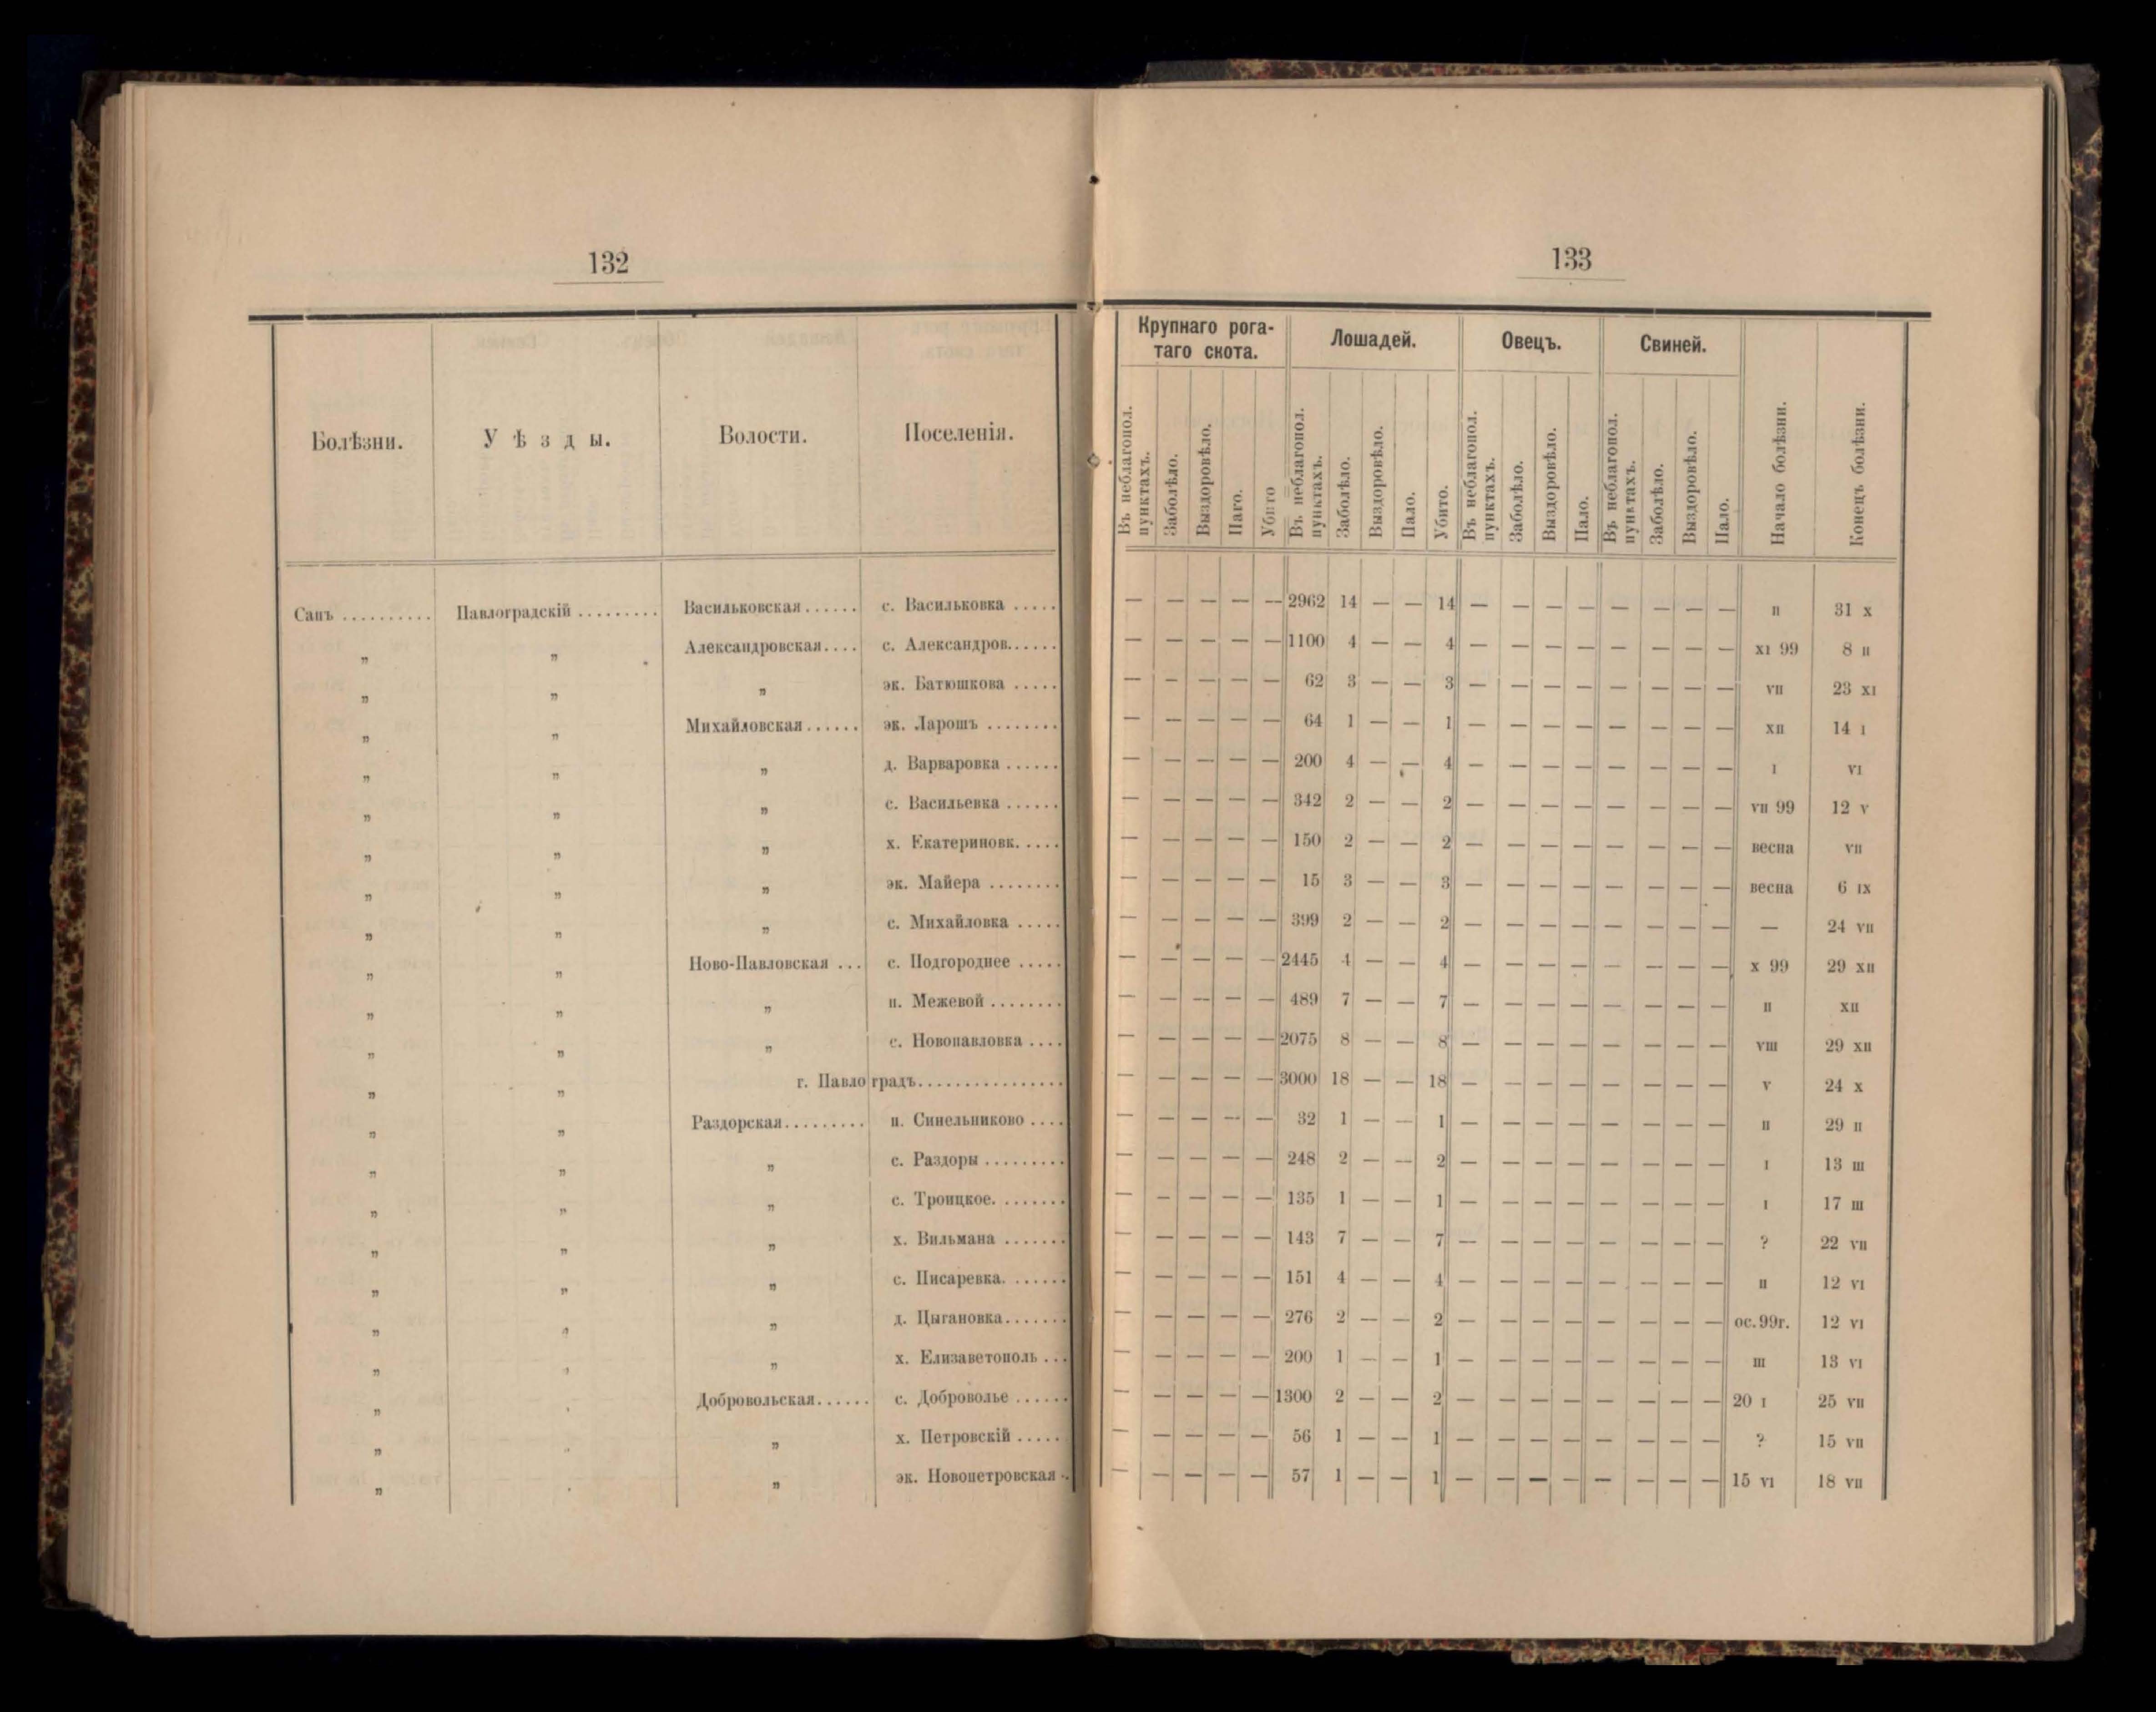 132
133
Болѣзни. Уѣзды. Волости. Поселенія.
Крупнаго рога-
таго скота. Лошадей. Овецъ. Свиней.
Въ неблагопол. пунктахъ. Заболѣло. Выздоровѣло. Паго. Убито Въ неблагопол. пунктахъ. Заболѣло. Выздоровѣло. Пало. Убито. Въ неблагопол. пунктахъ. Заболѣло. Выздоровѣло. Пало. Въ неблагопол. пунктахъ. Заболѣло. Выздоровѣло. Пало. Начало болѣзни. Конецъ болѣзни.
Сапъ .......... Павлоградскій ......... Васильковская ...... с. Васильковка ..... — — — — — 2962 14 — — 14 — — — — — — — — II 31 X
„ „ Александровская.... с. Александров...... — — — — — 1100 4 — — 4 — — — — — — — — XI 99 8 II
„ „ „ эк. Батюшкова ..... — — — — — 62 3 — — 3 — — — — — — — — VII 23 XI
„ „ Михайловская ...... эк. Ларошъ ........ — — — — — 64 1 — — 1 — — — — — — — — XII 14 I
„ „ „ д. Варваровка ...... — — — — — 200 4 — — 4 — — — — — — — — I VI
„ „ „ с. Васильевка ...... — — — — — 342 2 — — 2 — — — — — — — — VII 99 12 V
„ „ „ х. Екатериновк. .... — — — — — 150 2 — — 2 — — — — — — — — весна VII
„ „ „ эк. Майера ........ — — — — — 15 3 — — 3 — — — — — — — — весна 6 IX
„ „ „ с. Михайловка ..... — — — — — 399 2 — — 2 — — — — — — — — — 24 VII
„ „ Ново-Павловская ... с. Подгороднее ..... — — — — — 2445 4 — — 4 — — — — — — — — X 99 29 XII
„ „ „ п. Межевой ........ — — — — — 489 7 — — 7 — — — — — — — — II XII
„ „ „ с. Новопавловка .... — — — — — 2075 8 — — 8 — — — — — — — — VIII 29 XII
„ „ г. Павлоградъ................ — — — — — 3000 18 — — 18 — — — — — — — — V 24 X
„ „ Раздорская......... п. Синельниково .... — — — — — 32 1 — — 1 — — — — — — — — II 29 II
„ „ „ с. Раздоры ......... — — — — — 248 2 — — 2 — — — — — — — — I 13 III
„ „ „ с. Троицкое. ....... — — — — — 135 1 — — 1 — — — — — — — — I 17 III
„ „ „ х. Вильмана ....... — — — — — 143 7 — — 7 — — — — — — — — ? 22 VII
„ „ „ с. Писаревка. ...... — — — — — 151 4 — — 4 — — — — — — — — II 12 VI
„ „ „ д. Цыгановка....... — — — — — 276 2 — — 2 — — — — — — — — ос. 99г. 12 VI
„ „ „ х. Елизаветополь ... — — — — — 200 1 — — 1 — — — — — — — — III 13 VI
„ „ Добровольская...... с. Доброволье ...... — — — — — 1300 2 — — 2 — — — — — — — — 20 I 25 VII
„ „ „ х. Петровскій ..... — — — — — 56 1 — — 1 — — — — — — — — ? 15 VII
„ „ „ эк. Новопетровская .. — — — — — 57 1 — — 1 — — — — — — — — 15 VI 18 VII